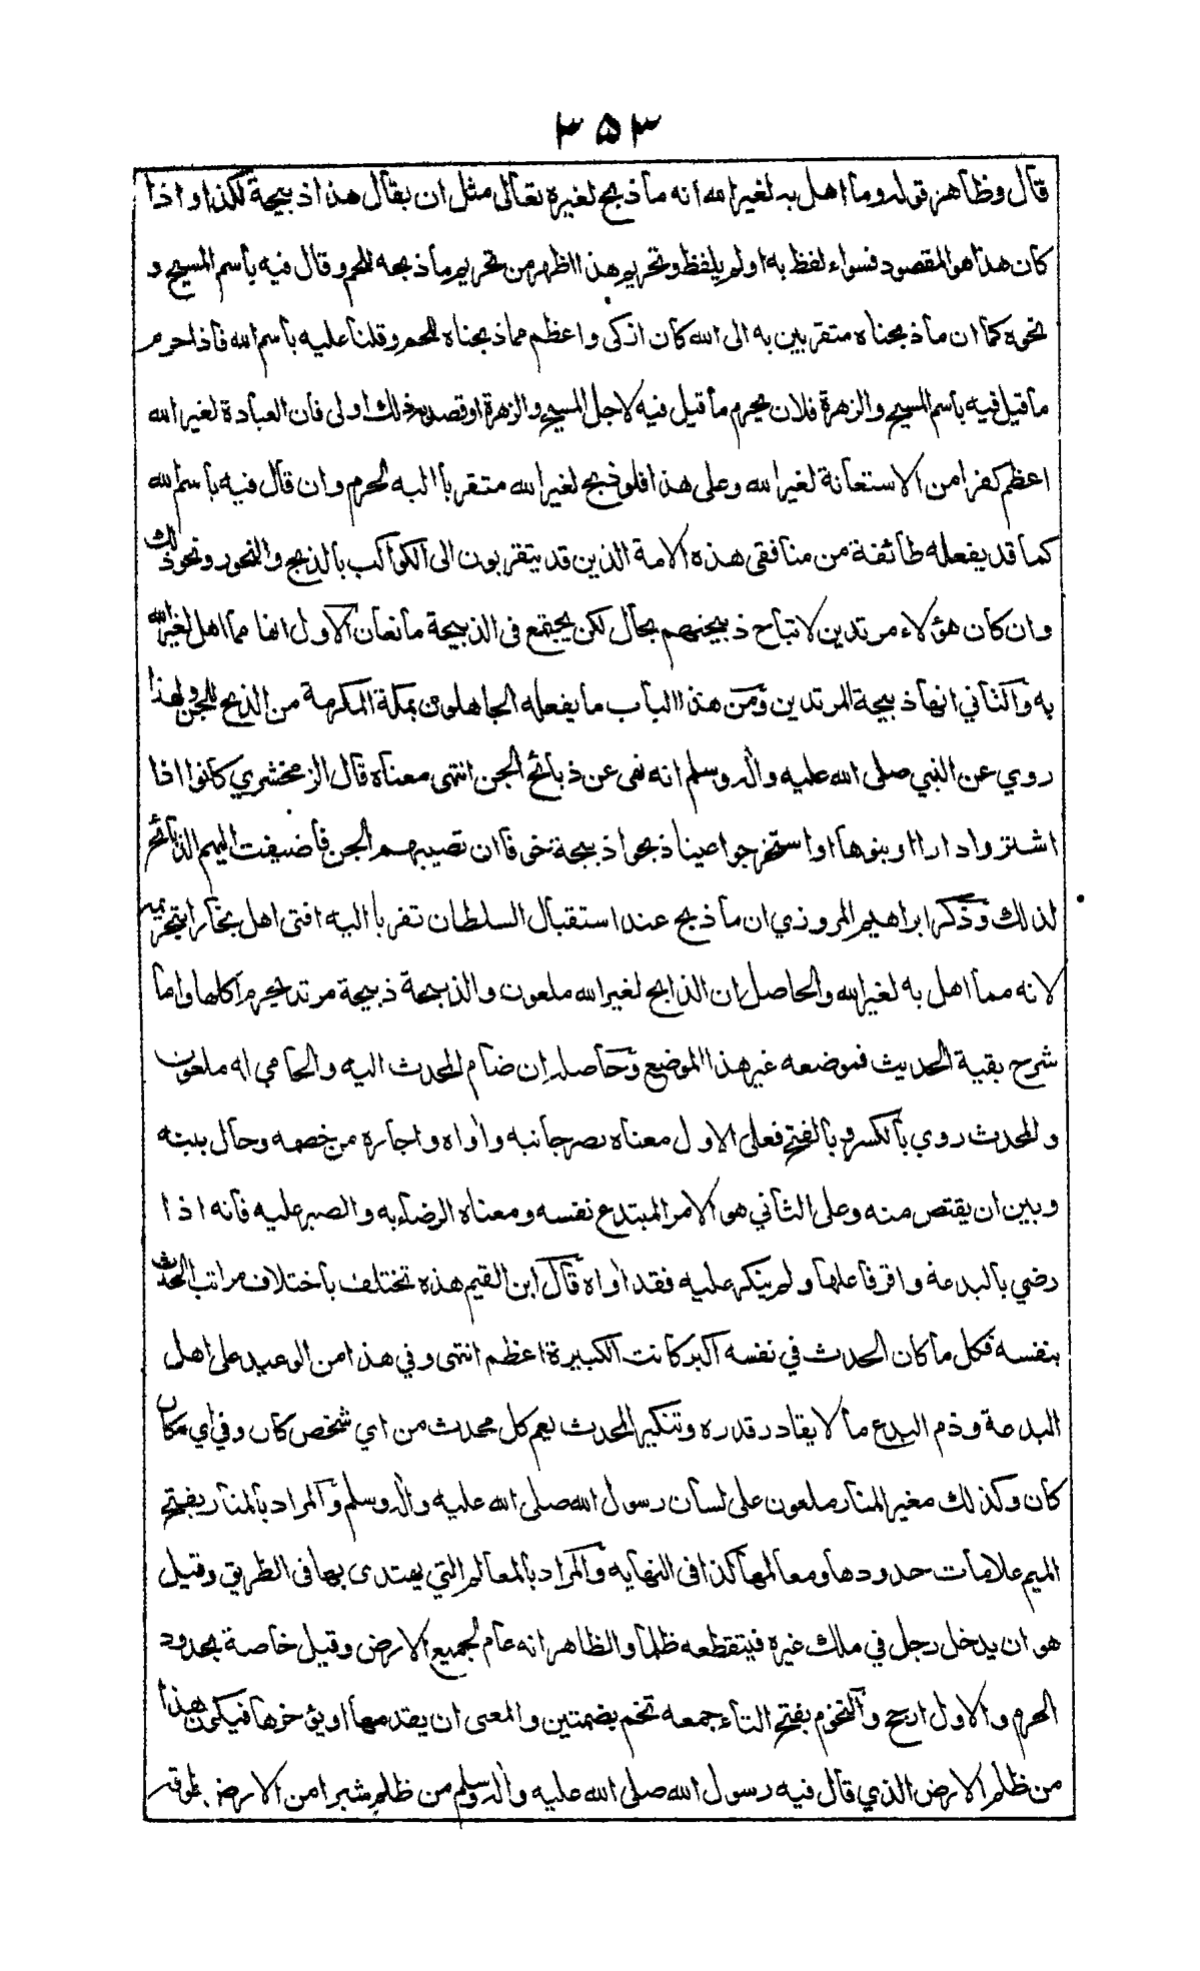 ٣٥٣
قال وظاهر قوله وما اهل به لغير الله انه ما ذبح لغيره تعالى مثل ان يقال هذا ذبيحة لكذا واذا
كان هذا هو المقصود فسواء لفظ به او لم يلفظ وتحريم هذا اظهر من تحريم ما ذبحه للحم وقال فيه باسم المسيح و
نحوه كما ان ما ذبحناه متقربين به الى الله كان ازكى واعظم مما ذبحناه للحم وقلنا عليه باسم الله فاذا حرم
ما قيل فيه باسم المسيح والزهرة فلان يحرم ما قيل فيه لاجل المسيح والزهرة او قصد به ذلك اولى فان العبادة لغير الله
اعظم كفرا من الاستعانة لغير الله وعلى هذا فلو ذبح لغير الله متقربا اليه لحرم وان قال فيه باسم الله
كما قد يفعله طائفة من منافقي هذه الامة الذين قد يتقربون الى الكواكب بالذبح والنحور ونحو ذلك
وان كان هؤلاء مرتدين لا تباح ذبيحتهم بحال لكن يجتمع في الذبيحة مانعان الاول انها مما اهل لغير الله
به والثاني انها ذبيحة المرتدين ومن هذا الباب ما يفعله الجاهلون بمكة المكرمة من الذبح للجن ولهذا
روي عن النبي صلى الله عليه واله وسلم انه نهى عن ذبائح الجن انتهى معناه قال الزمخشري كانوا اذا
اشتروا دارا او بنوها او استخرجوا عينا ذبحوا ذبيحة خوفا ان تصيبهم الجن فاضيفت اليهم الذبائح
لذلك وذكر ابراهيم المروزي ان ما ذبح عند استقبال السلطان تقربا اليه افتى اهل بخارا بتحريمه
لانه مما اهل به لغير الله والحاصل ان الذابح لغير الله ملعون والذبيحة ذبيحة مرتد يحرم اكلها واما
شرح بقية الحديث فموضعه غير هذا الموضع وحاصله ان ضام المحدث اليه والحامي له ملعون
والمحدث روي بالكسر وبالفتح فعلى الاول معناه نصر جانبه واواه واجاره من خصمه وحال بينه
وبين ان يقتص منه وعلى الثاني هو الامر المبتدع نفسه ومعناه الرضاء به والصبر عليه فانه اذا
رضي بالبدعة واقر فاعلها ولم ينكر عليه فقد اواه قال ابن القيم هذه تختلف باختلاف مراتب الحدث
بنفسه فكل ما كان الحدث في نفسه اكبر كانت الكبيرة اعظم انتهى وفي هذا من الوعيد على اهل
البدعة وذم البدع ما لا يقادر قدره وتنكير المحدث يعم كل محدث من اي شخص كان وفي اي مكان
كان وكذلك مغير المنار ملعون على لسان رسول الله صلى الله عليه واله وسلم والمراد بالمنار بفتح
الميم علامات حدودها ومعالمها كذا في النهايه والمراد بالمعالم التي يهتدى بها في الطريق وقيل
هو ان يدخل رجل في ملك غيره فيتقطعه ظلما والظاهر انه عام لجميع الارض وقيل خاصة بحدود
الحرم والاول ارجح والتخوم بفتح التاء جمعه تخم بضمتين والمعنى ان يقدمها او يؤخرها فيكون هذا
من ظلم الارض الذي قال فيه رسول الله صلى الله عليه واله وسلم من ظلم شبرا من الارض طوقه